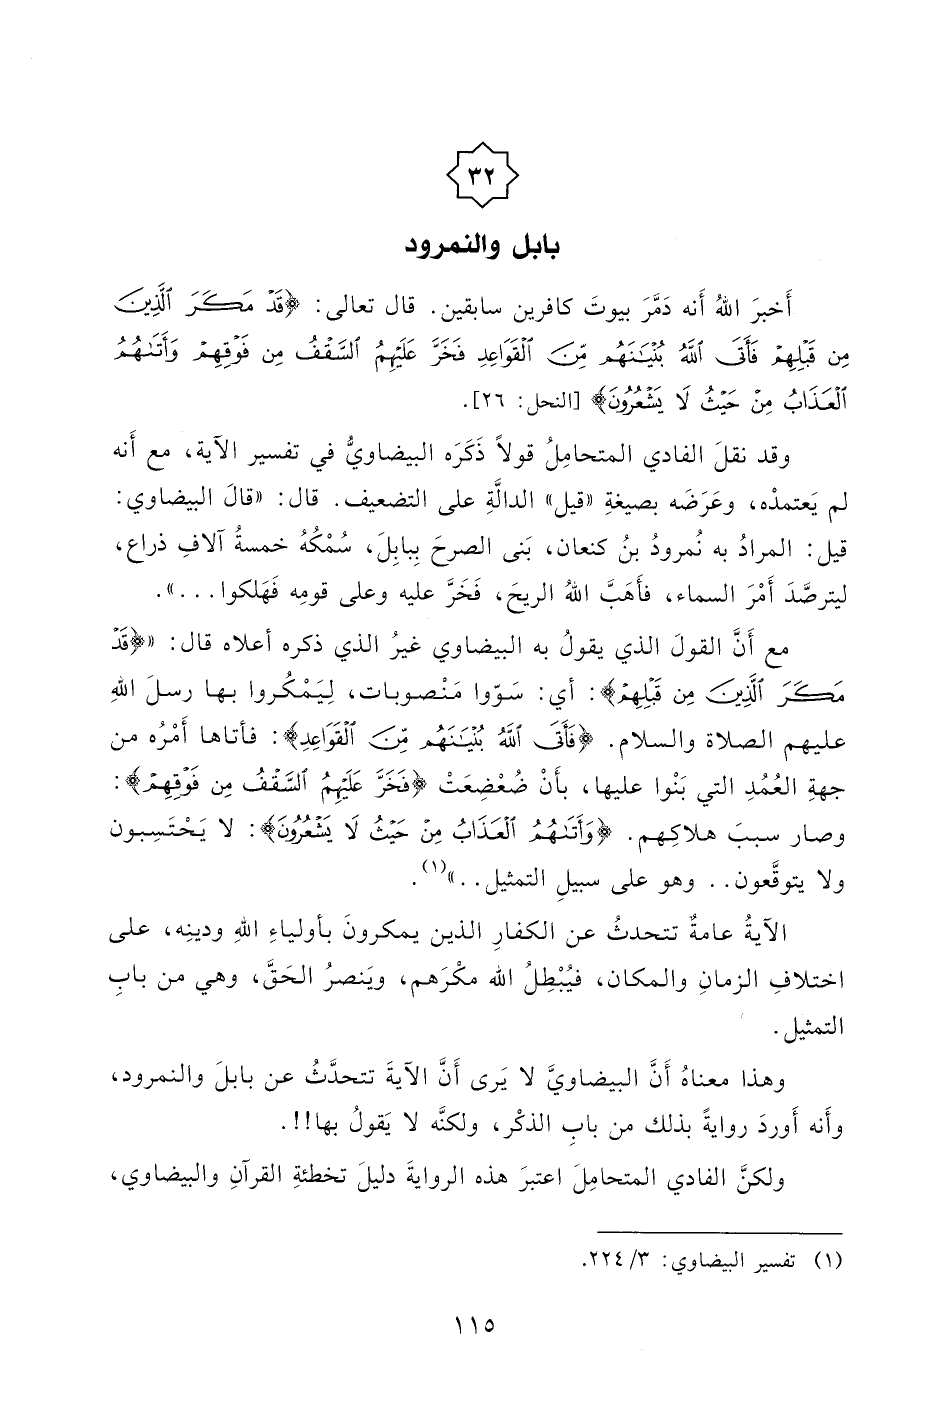 ٣٢
بابل والنمرود
أخبرَ اللهُ أنه دَمَّرَ بيوتَ كافرين سابقين. قال تعالى: ﴿قَدْ مَكَرَ ٱلَّذِينَ
مِن قَبْلِهِمْ فَأَتَى ٱللَّهُ بُنْيَٰنَهُم مِّنَ ٱلْقَوَاعِدِ فَخَرَّ عَلَيْهِمُ ٱلسَّقْفُ مِن فَوْقِهِمْ وَأَتَىٰهُمُ
ٱلْعَذَابُ مِنْ حَيْثُ لَا يَشْعُرُونَ﴾ [النحل: ٢٦].
وقد نقلَ الفادي المتحامِلُ قولاً ذَكَرَه البيضاويُّ في تفسير الآية، مع أنه
لم يَعتمدْه، وعَرَضَه بصيغةِ «قيل» الدالَّةِ على التضعيف. قال: «قالَ البيضاوي:
قيل: المرادُ به نُمرودُ بنُ كنعان، بَنى الصرحَ بِبابِلَ، سُمْكُهُ خمسةُ آلافِ ذراع،
ليترصَّدَ أَمْرَ السماء، فأهَبَّ اللهُ الريحَ، فَخَرَّ عليه وعلى قومِه فَهَلكوا...».
مع أَنَّ القولَ الذي يقولُ به البيضاوي غيرُ الذي ذكره أعلاه قال: «﴿قَدْ
مَكَرَ ٱلَّذِينَ مِن قَبْلِهِمْ﴾: أي: سَوّوا مَنْصوبات، لِيَمْكُروا بها رسلَ اللهِ
عليهم الصلاة والسلام. ﴿فَأَتَى ٱللَّهُ بُنْيَٰنَهُم مِّنَ ٱلْقَوَاعِدِ﴾: فأتاها أَمْرُه من
جهةِ العُمُدِ التي بَنْوا عليها، بأَنْ ضُعْضِعَتْ ﴿فَخَرَّ عَلَيْهِمُ ٱلسَّقْفُ مِن فَوْقِهِمْ﴾:
وصار سببَ هلاكِهم. ﴿وَأَتَىٰهُمُ ٱلْعَذَابُ مِنْ حَيْثُ لَا يَشْعُرُونَ﴾: لا يَحْتَسِبون
ولا يتوقَّعون.. وهو على سبيلِ التمثيل..»(١).
الآيةُ عامةٌ تتحدثُ عن الكفارِ الذين يمكرونَ بأولياءِ اللهِ ودينِه، على
اختلافِ الزمانِ والمكان، فيُبْطِلُ الله مكْرَهم، ويَنصرُ الحَقَّ، وهي من بابِ
التمثيل.
وهذا معناهُ أَنَّ البيضاويَّ لا يَرى أَنَّ الآيةَ تتحدَّثُ عن بابلَ والنمرود،
وأنه أوردَ روايةً بذلك من بابِ الذكْر، ولكنَّه لا يَقولُ بها!!.
ولكنَّ الفادي المتحامِلَ اعتبرَ هذه الروايةَ دليلَ تخطئةِ القرآنِ والبيضاوي،
(١) تفسير البيضاوي: ٣/ ٢٢٤.
١١٥